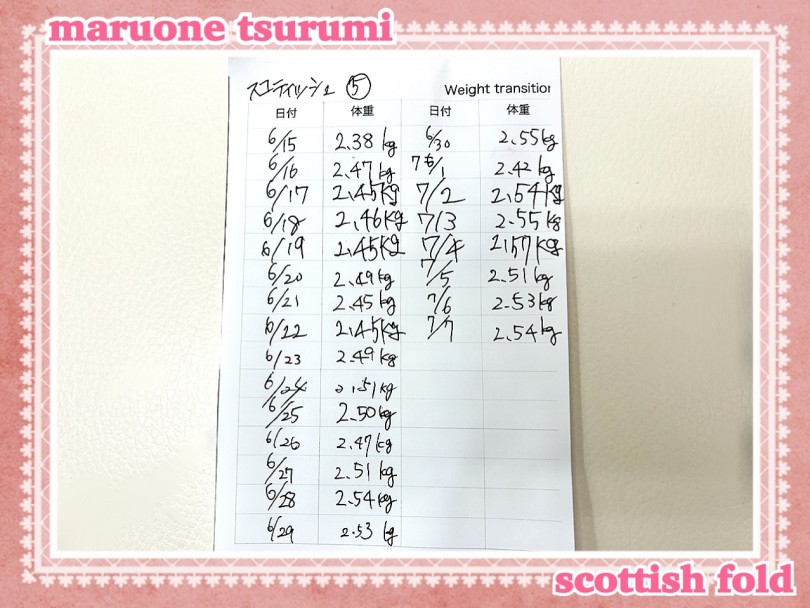 maruone tsurumi
スコティッシュ ⑤
Weight transition
日付 体重 日付 体重
6/15 2.38 kg 6/30 2.55kg
6/16 2.47 kg 7/1 2.42 kg
6/17 2.45kg 7/2 2.54kg
6/18 2.46kg 7/3 2.55 kg
6/19 2.45kg 7/4 2.57kg
6/20 2.49kg 7/5 2.51 kg
6/21 2.45 kg 7/6 2.53kg
6/22 2.45kg 7/7 2.54kg
6/23 2.49 kg
6/24 2.51kg
6/25 2.50kg
6/26 2.47kg
6/27 2.51 kg
6/28 2.54kg
6/29 2.53 kg
scottish fold